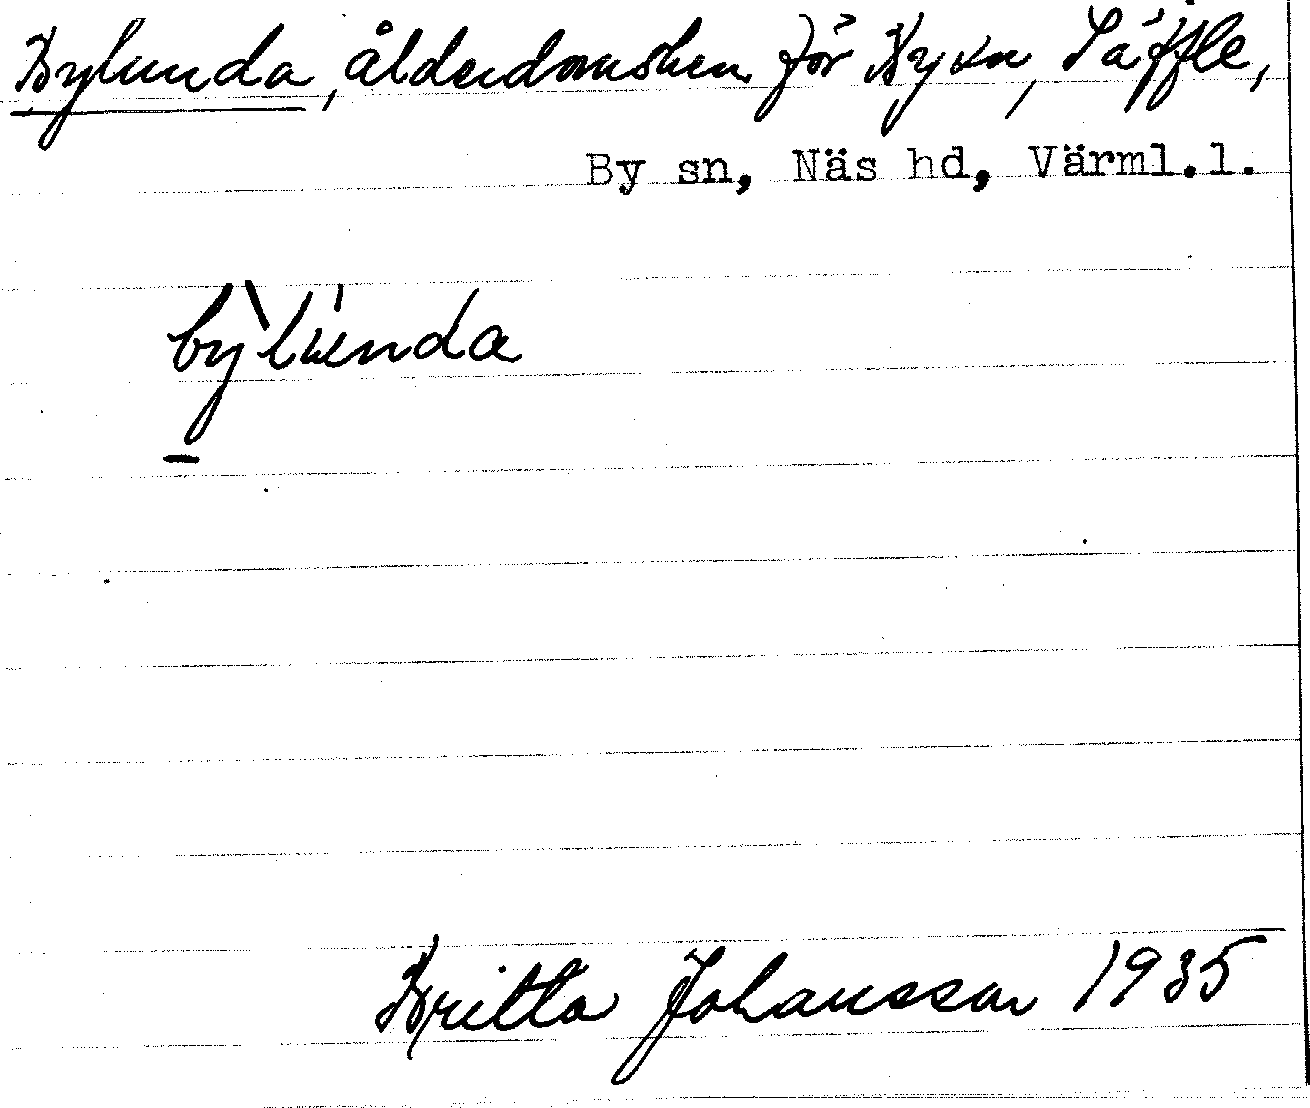 Bylunda, ålderdomshem för By sn, Säffle,
By sn, Näs hd, Värml.l.
bỳlùnda
Britta Johansson 1935